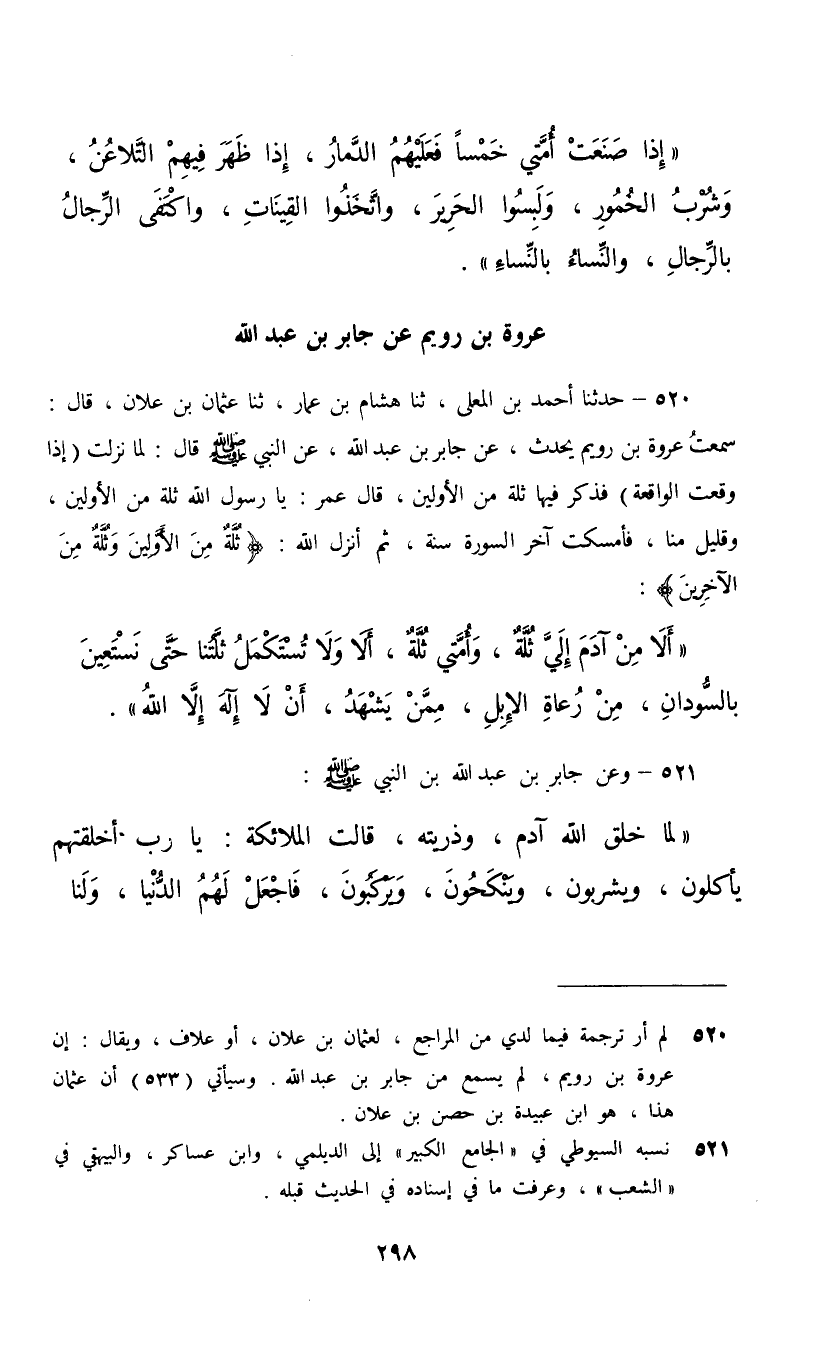 « إِذا صَنَعَتْ أُمَّتي خَمْساً فَعَلَيْهُمُ الدَّمارُ ، إِذا ظَهَرَ فِيهِمْ التَّلاعُنُ ،
وَشُرْبُ الخُمُورِ ، وَلَبِسُوا الحَرِيرَ ، واتَّخَذُوا القِينَاتِ ، واكْتَفَى الرِّجالُ
بالرِّجالِ ، والنِّساءُ بالنِّساءِ » .
عروة بن رويم عن جابر بن عبد الله
٥٢٠ – حدثنا أحمد بن المعلى ، ثنا هشام بن عمار ، ثنا عثمان بن علان ، قال :
سمعتُ عروة بن رويم يحدث ، عن جابر بن عبد الله ، عن النبي ﷺ قال : لما نزلت ( إذا
وقعت الواقعة ) فذكر فيها ثلة من الأولين ، قال عمر : يا رسول الله ثلة من الأولين ،
وقليل منا ، فأمسكت آخر السورة سنة ، ثم أنزل الله : ﴿ ثُلَّةٌ مِنَ الأَوَّلِينَ وَثُلَّةٌ مِنَ
الآخِرِينَ ﴾ :
« أَلَا مِنْ آدَمَ إِلَيَّ ثُلَّةٌ ، وَأُمَّتي ثُلَّةٌ ، أَلَا وَلَا تُسْتَكْمَلُ ثلَّتُنا حَتَّى نَسْتَعِينَ
بالسُّودانِ ، مِنْ رُعاةِ الإِبِلِ ، مِمَّنْ يَشْهَدُ ، أَنْ لَا إِلَهَ إِلَّا اللهُ » .
٥٢١ – وعن جابر بن عبد الله بن النبي ﷺ :
« لما خلق الله آدم ، وذريته ، قالت الملائكة : يا رب أخلقتهم
يأكلون ، ويشربون ، ويَنْكَحُونَ ، وَيَرْكَبُونَ ، فَاجْعَلْ لَهُمُ الدُّنْيا ، وَلَنا
٥٢٠ لم أر ترجمة فيما لدي من المراجع ، لعثمان بن علان ، أو علاف ، ويقال : إن
عروة بن رويم ، لم يسمع من جابر بن عبد الله . وسيأتي ( ٥٣٣ ) أن عثمان
هذا ، هو ابن عبيدة بن حصن بن علان .
٥٢١ نسبه السيوطي في « الجامع الكبير » إلى الديلمي ، وابن عساكر ، والبيهقي في
« الشعب » ، وعرفت ما في إسناده في الحديث قبله .
٢٩٨